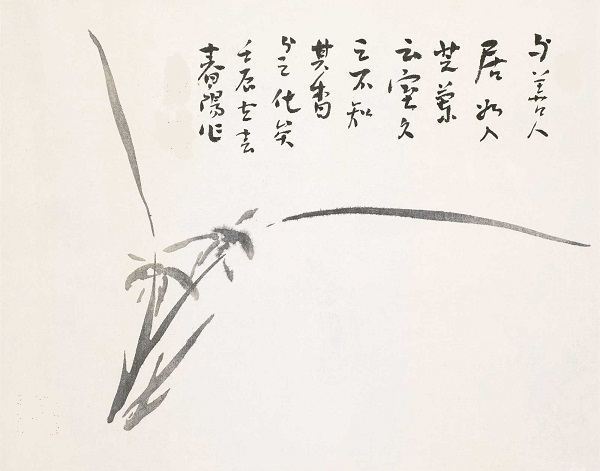 与善人
居如入
芝蘭
之室久
而不知
其香
与之化矣
壬辰
春陽作